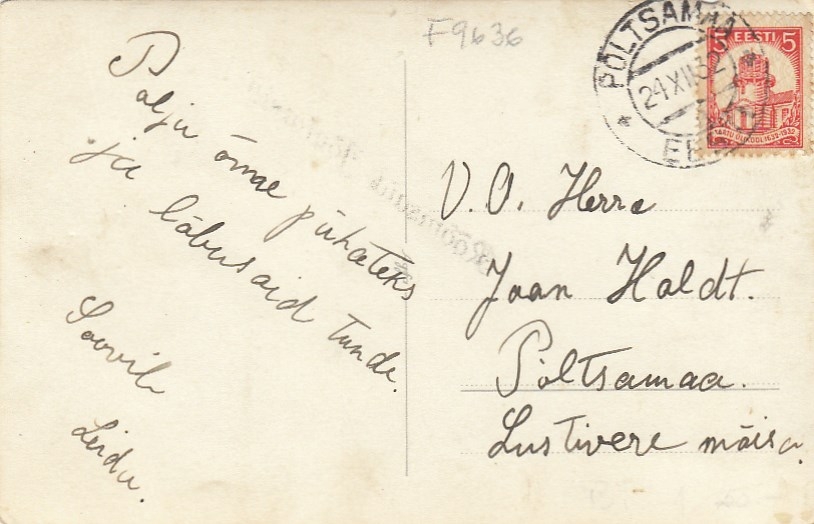 F9636
PÕLTSAMAA
24 XII 32
EESTI
5 EESTI 5
TARTU ÜLIKOOL 1632-1932
Palju õnne pühateks
ja lõbusaid tunde.
Soovib
Leida.
V. A. Herra
Jaan Haldt.
Põltsamaa.
Lustivere mõisa.